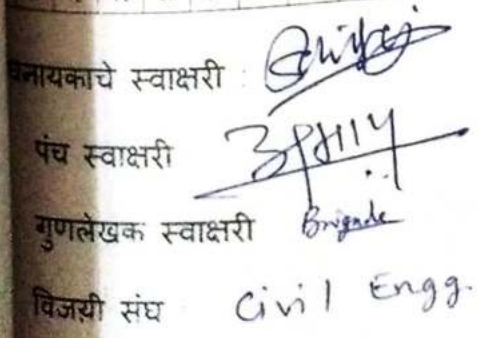 नायकाचे स्वाक्षरी :
पंच स्वाक्षरी
गुणलेखक स्वाक्षरी Brigade
विजयी संघ Civil Engg.